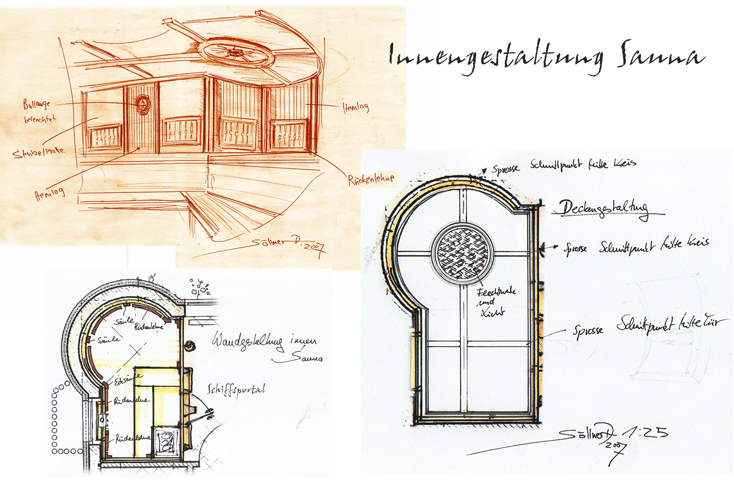 Innengestaltung Sauna
Bullauge
beleuchtet
Hemlog
Hemlog
Rückenlehne
Söllner D. 2007
Sprosse Schnittpunkt Mitte Kreis
Deckengestaltung
Sprosse Schnittpunkt Mitte Kreis
und
Licht
Sprosse Schnittpunkt Mitte Tür
Söllner D 1:25
2007
Wandgestaltung innen
Sauna
Schiffsportal
Säule
Rückenlehne
Säule
Rückenlehne
Rückenlehne